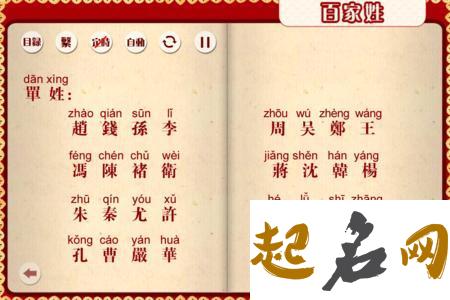 百家姓
目録 繁 定時 自動
dān xìng
單 姓：
zhào qián sūn lǐ
趙 錢 孫 李
féng chén chǔ wèi
馮 陳 褚 衛
zhū qín yóu xǔ
朱 秦 尤 許
kǒng cáo yán huà
孔 曹 嚴 華
zhōu wú zhèng wáng
周 吴 鄭 王
jiǎng shěn hán yáng
蔣 沈 韓 楊
shī zhāng
起名网